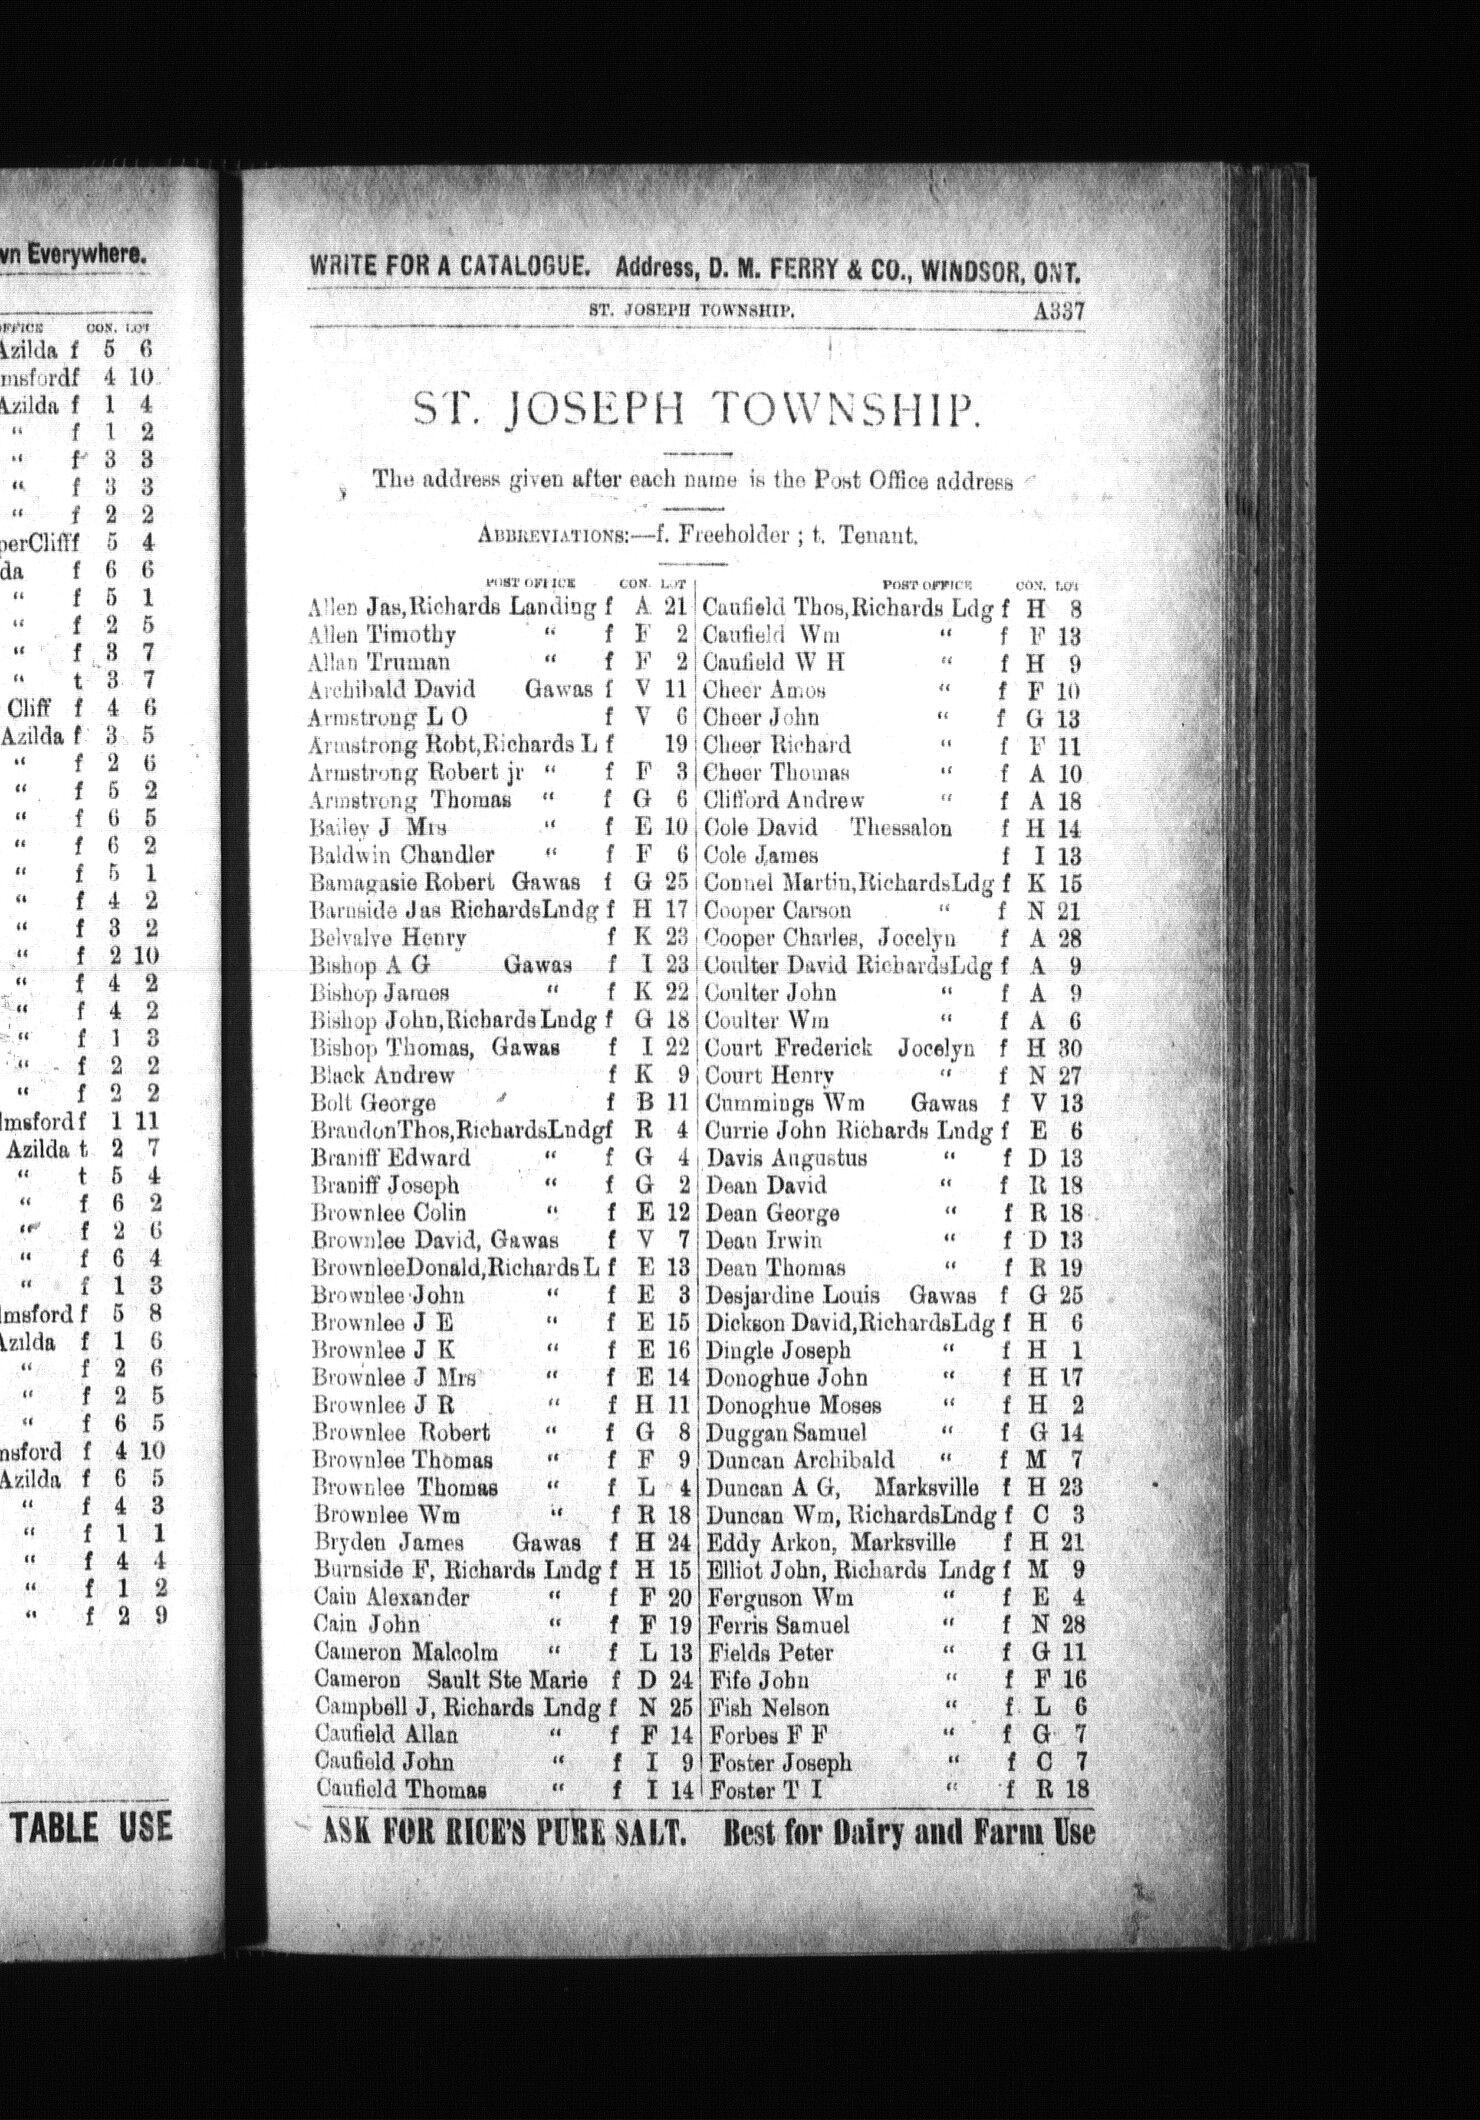 vn Everywhere.
OFFICE CON. LOT
Azilda f 5 6
msford f 4 10
Azilda f 1 4
“ f 1 2
“ f 3 3
“ f 3 3
“ f 2 2
perCliff f 5 4
da f 6 6
“ f 5 1
“ f 2 5
“ f 3 7
“ t 3 7
Cliff f 4 6
Azilda f 3 5
“ f 2 6
“ f 5 2
“ f 6 5
“ f 6 2
“ f 5 1
“ f 4 2
“ f 3 2
“ f 2 10
“ f 4 2
“ f 4 2
“ f 1 3
“ f 2 2
“ f 2 2
lmsford f 1 11
Azilda t 2 7
“ t 5 4
“ f 6 2
“ f 2 6
“ f 6 4
“ f 1 3
lmsford f 5 8
Azilda f 1 6
“ f 2 6
“ f 2 5
“ f 6 5
nsford f 4 10
Azilda f 6 5
“ f 4 3
“ f 1 1
“ f 4 4
“ f 1 2
“ f 2 9
TABLE USE
WRITE FOR A CATALOGUE. Address, D. M. FERRY & CO., WINDSOR, ONT.
ST. JOSEPH TOWNSHIP. A337
ST. JOSEPH TOWNSHIP.
The address given after each name is the Post Office address
ABBREVIATIONS:—f. Freeholder ; t. Tenant.
POST OFFICE CON. LOT
Allen Jas, Richards Landing f A 21
Allen Timothy “ f F 2
Allan Truman “ f F 2
Archibald David Gawas f V 11
Armstrong L O f V 6
Armstrong Robt, Richards L f 19
Armstrong Robert jr “ f F 3
Armstrong Thomas “ f G 6
Bailey J Mrs “ f E 10
Baldwin Chandler “ f F 6
Bamagasie Robert Gawas f G 25
Barnside Jas RichardsLndg f H 17
Belvalve Henry f K 23
Bishop A G Gawas f I 23
Bishop James “ f K 22
Bishop John, Richards Lndg f G 18
Bishop Thomas, Gawas f I 22
Black Andrew f K 9
Bolt George f B 11
BrandonThos, RichardsLndgf R 4
Braniff Edward “ f G 4
Braniff Joseph “ f G 2
Brownlee Colin “ f E 12
Brownlee David, Gawas f V 7
BrownleeDonald, Richards L f E 13
Brownlee John “ f E 3
Brownlee J E “ f E 15
Brownlee J K “ f E 16
Brownlee J Mrs “ f E 14
Brownlee J R “ f H 11
Brownlee Robert “ f G 8
Brownlee Thomas “ f F 9
Brownlee Thomas “ f L 4
Brownlee Wm “ f R 18
Bryden James Gawas f H 24
Burnside F, Richards Lndg f H 15
Cain Alexander “ f F 20
Cain John “ f F 19
Cameron Malcolm “ f L 13
Cameron Sault Ste Marie f D 24
Campbell J, Richards Lndg f N 25
Caufield Allan “ f F 14
Caufield John “ f I 9
Caufield Thomas “ f I 14
POST OFFICE CON. LOT
Caufield Thos, Richards Ldg f H 8
Caufield Wm “ f F 13
Caufield W H “ f H 9
Cheer Amos “ f F 10
Cheer John “ f G 13
Cheer Richard “ f F 11
Cheer Thomas “ f A 10
Clifford Andrew “ f A 18
Cole David Thessalon f H 14
Cole James f I 13
Connel Martin, RichardsLdg f K 15
Cooper Carson “ f N 21
Cooper Charles, Jocelyn f A 28
Coulter David RichardsLdg f A 9
Coulter John “ f A 9
Coulter Wm “ f A 6
Court Frederick Jocelyn f H 30
Court Henry “ f N 27
Cummings Wm Gawas f V 13
Currie John Richards Lndg f E 6
Davis Augustus “ f D 13
Dean David “ f R 18
Dean George “ f R 18
Dean Irwin “ f D 13
Dean Thomas “ f R 19
Desjardine Louis Gawas f G 25
Dickson David, RichardsLdg f H 6
Dingle Joseph “ f H 1
Donoghue John “ f H 17
Donoghue Moses “ f H 2
Duggan Samuel “ f G 14
Duncan Archibald “ f M 7
Duncan A G, Marksville f H 23
Duncan Wm, RichardsLndg f C 3
Eddy Arkon, Marksville f H 21
Elliot John, Richards Lndg f M 9
Ferguson Wm “ f E 4
Ferris Samuel “ f N 28
Fields Peter “ f G 11
Fife John “ f F 16
Fish Nelson “ f L 6
Forbes F F “ f G 7
Foster Joseph “ f C 7
Foster T I “ f R 18
ASK FOR RICE'S PURE SALT. Best for Dairy and Farm Use